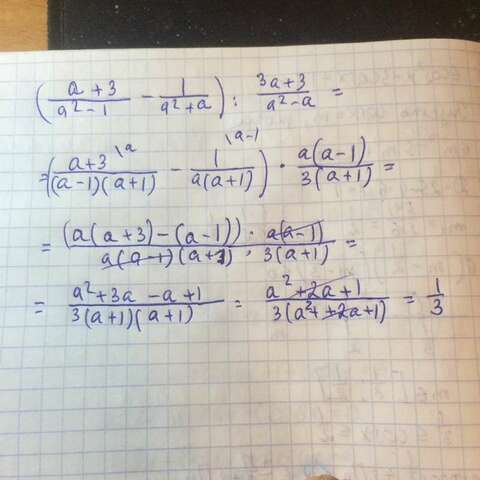 (a+3/a²-1 - 1/a²+a) : 3a+3/a²-a =
= (a+3\a/(a-1)(a+1) - 1\a-1/a(a+1)) · a(a-1)/3(a+1) =
= (a(a+3)-(a-1)) · a(a-1)/a(a-1)(a+1) · 3(a+1) =
= a²+3a-a+1/3(a+1)(a+1) = a²+2a+1/3(a²+2a+1) = 1/3